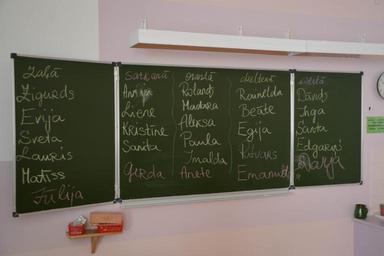 zaļā
Zigurds
Evija
Sveta
Lauris
Matīss
Jūlija
sarkanā
Anija
Liene
Kristīne
Sanita
Gerda
oranžā
Rolands
Madara
Aleksa
Paula
Imalda
Anete
dzeltenā
Rainelda
Beāte
Egija
Emanuēls
Dāvids
Inga
Santa
Edgars
Darja